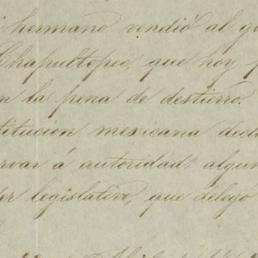 hermano vendió al
Chapultepec, que hoy
la pena de destierro.
titucion mexicana
rvar á autoridad algun
legislativo, que delegó